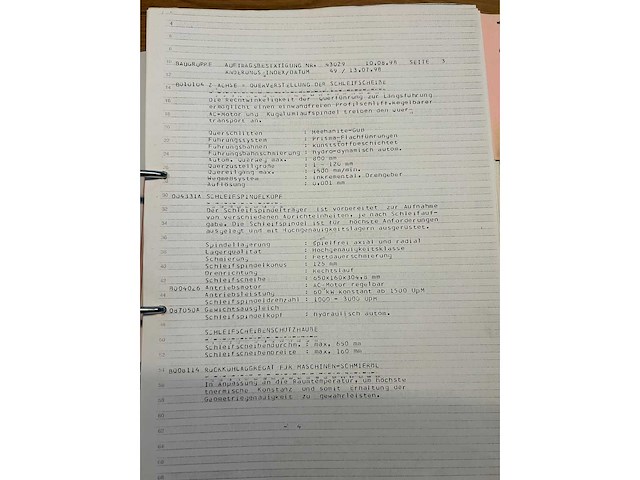 BAUGRUPPE AUFTRAGSBESTÄTIGUNG NR. 43029 10.08.98 SEITE 3
ÄNDERUNGS INDEX/DATUM 49 / 13.07.98
Z-ACHSE - QUERVERSTELLUNG DER SCHLEIFSCHEIBE
Die Rechtwinkligkeit der Querführung zur Längsführung
ermöglicht einen einwandfreien Profilschliff. Regelbarer
AC-Motor und Kugelumlaufspindel treiben den Quer-
transport an.
Querschlitten : Meehanite-Guß
Führungssystem : Prisma-Flachführungen
Führungsbahnen : kunststoffbeschichtet
Führungsbahnschmierung : hydro-dynamisch autom.
Autom. Querweg max. : 800 mm
Querzustellgröße : 1 - 120 mm
Quereilgang max. : 1500 mm/min.
Wegmeßsystem : inkremental. Drehgeber
Auflösung : 0.001 mm
004331A SCHLEIFSPINDELKOPF
Der Schleifspindelträger ist vorbereitet zur Aufnahme
von verschiedenen Abrichteinheiten, je nach Schleifauf-
gabe. Die Schleifspindel ist für höchste Anforderungen
ausgelegt und mit Hochgenauigkeitslagern ausgerüstet.
Spindellagerung : Spielfrei axial und radial
Lagerqualität : Hochgenauigkeitsklasse
Schmierung : Fettdauerschmierung
Schleifspindelkonus : 125 mm
Drehrichtung : Rechtslauf
Schleifscheibe : 650x160x304.8 mm
8004026 Antriebsmotor : AC-Motor regelbar
Antriebsleistung : 60 kW konstant ab 1500 UpM
Schleifspindeldrehzahl : 1000 - 3000 UpM
007050A Gewichtsausgleich
Schleifspindelkopf : Hydraulisch autom.
SCHLEIFSCHEIBENSCHUTZHAUBE
Schleifscheibendurchm. : max. 650 mm
Schleifscheibenbreite : max. 160 mm
8008114 RÜCKKÜHLAGGREGAT FÜR MASCHINEN-SCHMIERÖL
In Anpassung an die Raumtemperatur, um höchste
thermische Konstanz und somit Erhaltung der
Geometriegenauigkeit zu gewährleisten.
- 4